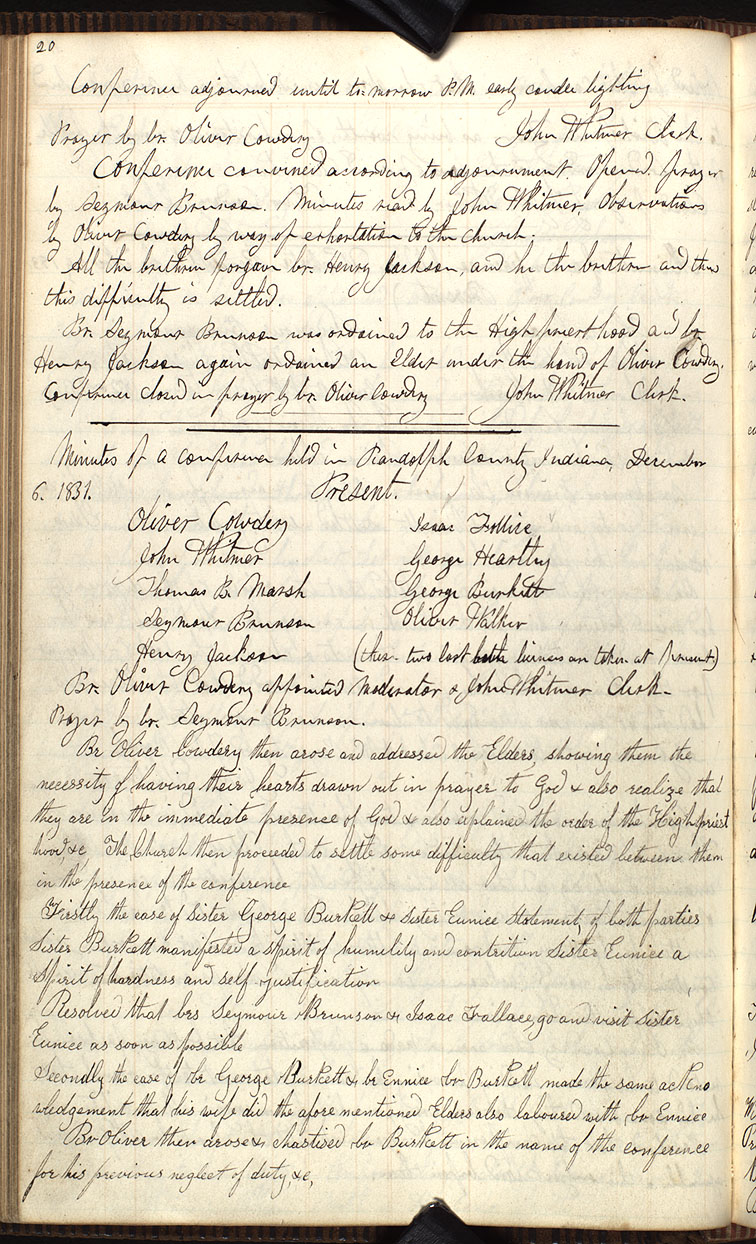 20
Conference adjourned until to-morrow P.M. early candle lighting
Prayer by br. Oliver Cowdery John Whitmer Clerk.
Conference convined according to adjournment. Opened prayer
by Seymour Brunson. Minutes read by John Whitmer, Observations
by Oliver Cowdery by way of exhortation to the church.
All the brethren forgave br. Henry Jackson, and he the brethren and thus
this difficulty is settled.
Br. Seymour Brunson was ordained to the High priesthood and br.
Henry Jackson again ordained an Elder under the hand of Oliver Cowdery.
Conference closed in prayer by br. Oliver Cowdery John Whitmer Clerk.
Minutes of a conference held in Randolph County Indiana, December
6. 1831. Present.
Oliver Cowdery Isaac
John Whitmer George Hearthy
Thomas B. Marsh George Burkett
Seymour Brunson Oliver Walker
Henry Jackson (these two last licenses are taken at present)
Br. Oliver Cowdery appointed Moderator & John Whitmer Clerk-
Prayer by br. Seymour Brunson.
Br Oliver Cowdery then arose and addressed the Elders, showing them the
necessity of having their hearts drawn out in prayer to God & also realize that
they are in the immediate presence of God & also explained the order of the High priest
hood, &c, The Church then proceeded to settle some difficulty that existed between them
in the presence of the conference
Firstly the case of Sister George Burkett & Sister Eunice Statement, of both parties
Sister Burkett manifested a spirit of humility and contrition Sister Eunice a
spirit of hardness and self-justification
Resolved that brs Seymour Brunson & Isaac Fallace, go and visit Sister
Eunice as soon as possible
Secondly the case of br George Burkett & br Ennice br Burkett made the same ackno
wledgement that his wife did the afore mentioned Elders also laboured with br Ennice
Br Oliver then arose & chastised br Burkett in the name of the conference
for his previous neglect of duty, &c,